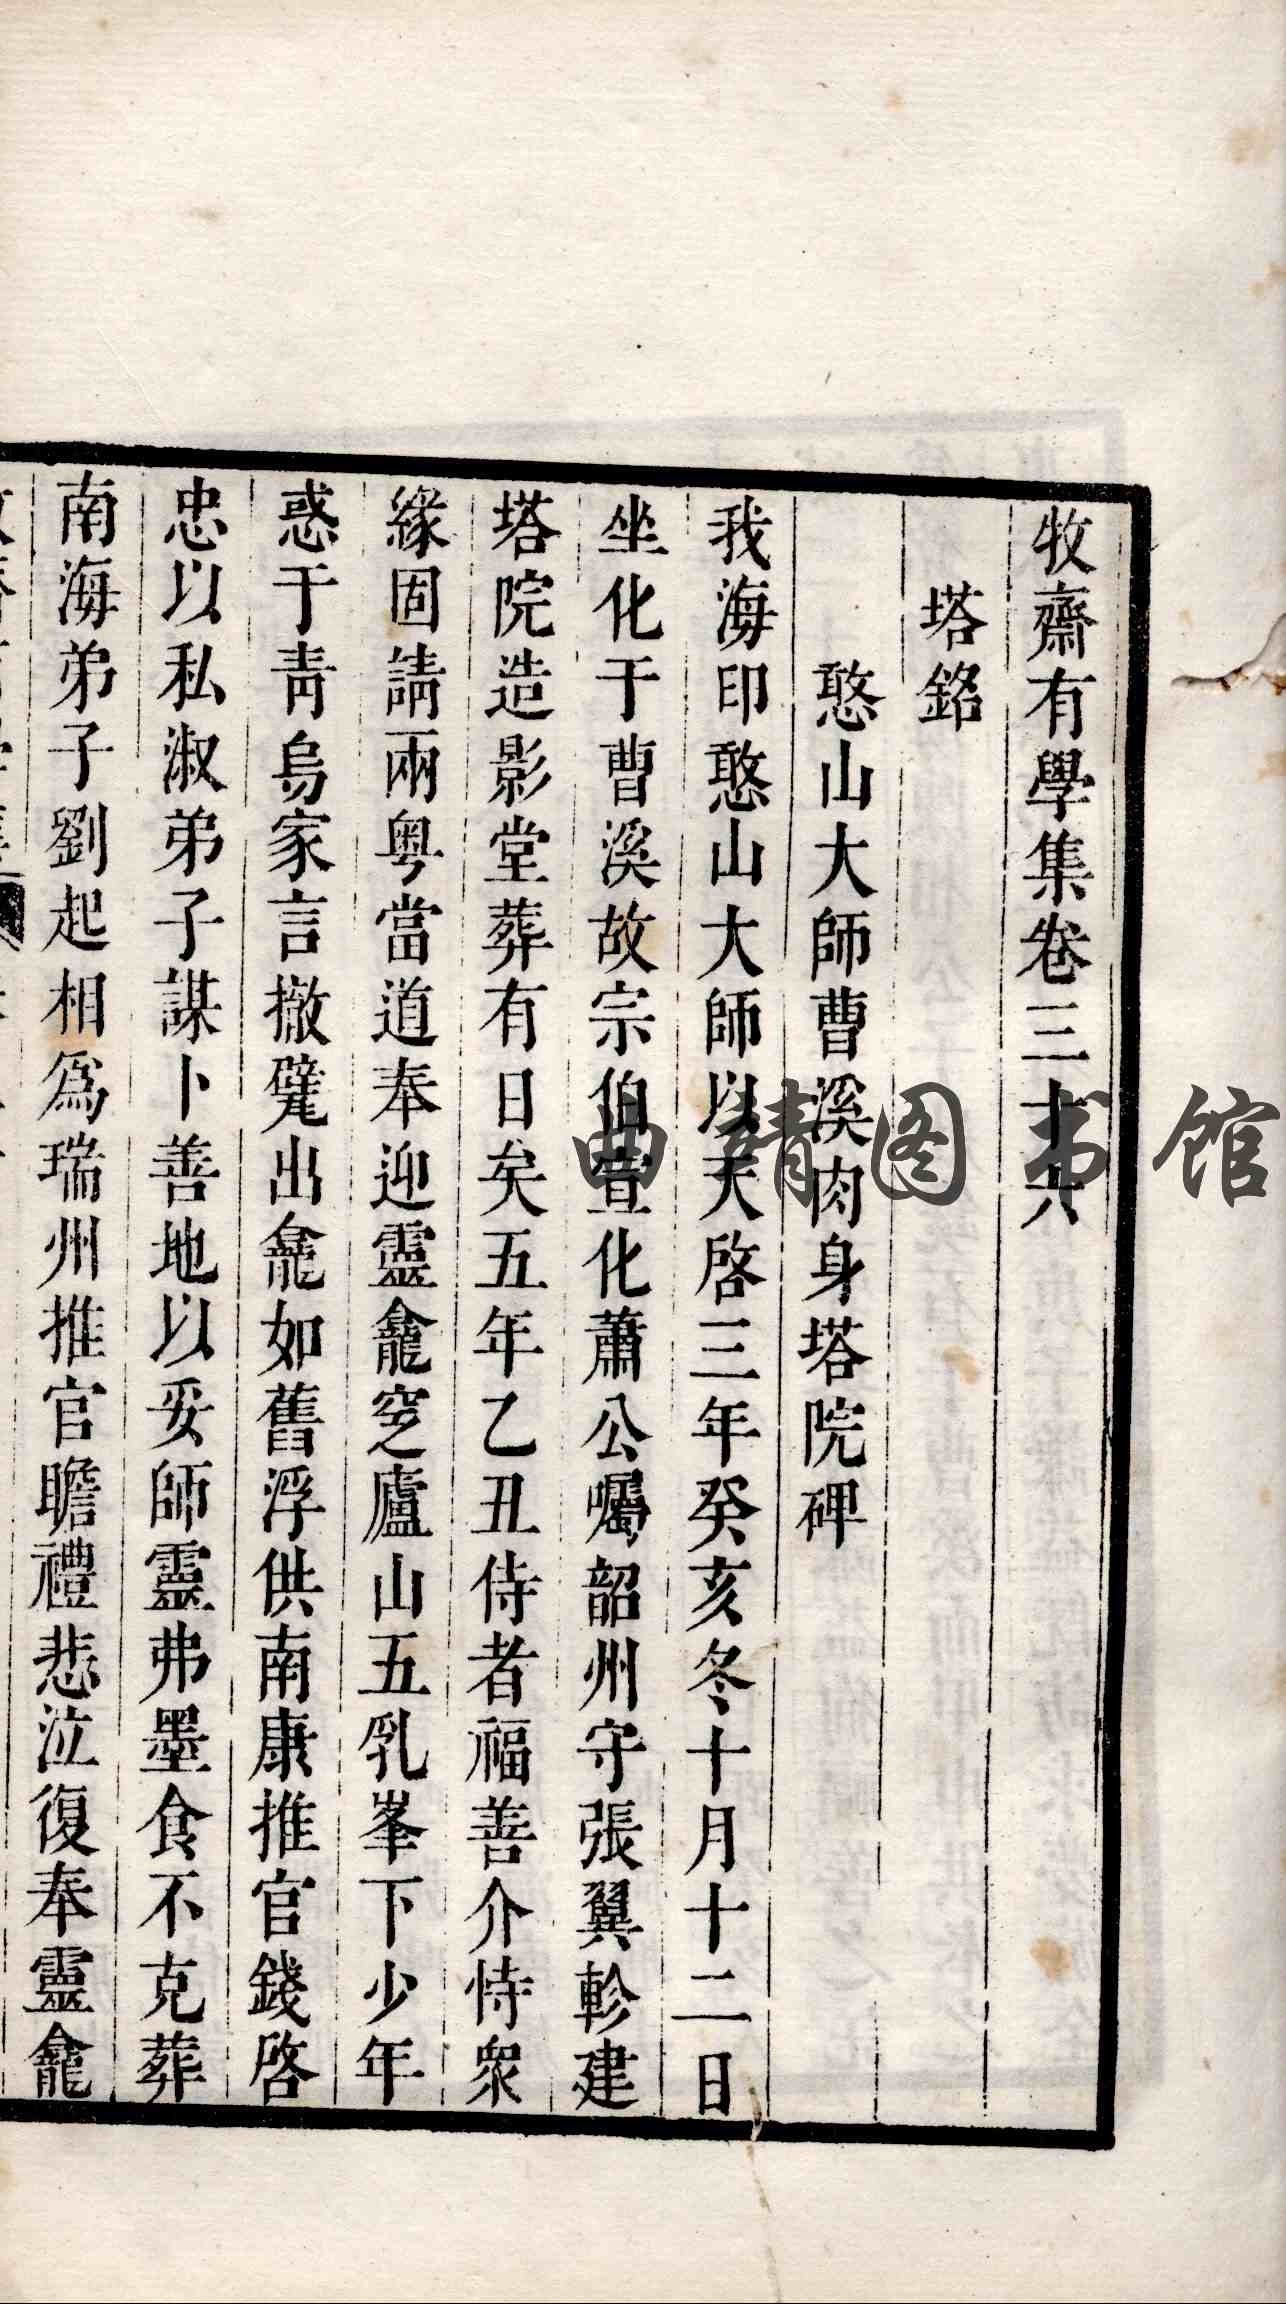 牧齋有學集卷三十六
塔銘
憨山大師曹溪肉身塔院碑
我海印憨山大師以天啓三年癸亥冬十月十二日
坐化于曹溪故宗伯宣化蕭公囑韶州守張翼軫建
塔院造影堂葬有日矣五年乙丑侍者福善介恃衆
緣固請兩粤當道奉迎靈龕窆廬山五乳峯下少年
惑于靑烏家言撤甃出龕如舊浮供南康推官錢啓
忠以私淑弟子謀卜善地以妥師靈弗墨食不克葬
南海弟子劉起相爲瑞州推官瞻禮悲泣復奉靈龕
曲靖图书馆